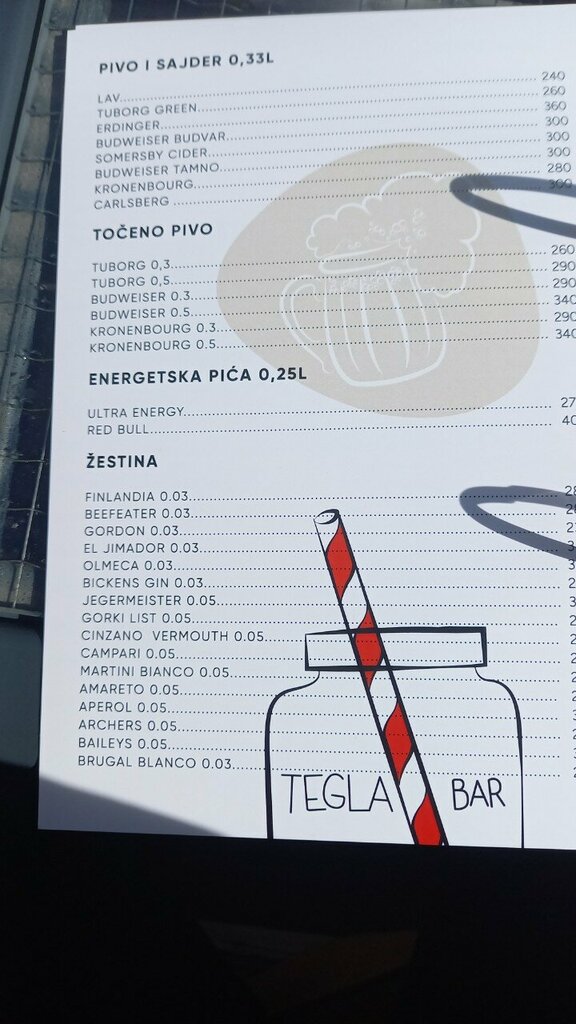 PIVO I SAJDER 0,33L
LAV................240
TUBORG GREEN................260
ERDINGER................360
BUDWEISER BUDVAR................300
SOMERSBY CIDER................300
BUDWEISER TAMNO................300
KRONENBOURG................280
CARLSBERG................300
TOČENO PIVO
TUBORG 0,3................260
TUBORG 0,5................290
BUDWEISER 0.3................290
BUDWEISER 0.5................340
KRONENBOURG 0.3................290
KRONENBOURG 0.5................340
ENERGETSKA PIĆA 0,25L
ULTRA ENERGY................
RED BULL................
ŽESTINA
FINLANDIA 0.03................
BEEFEATER 0.03................
GORDON 0.03................
EL JIMADOR 0.03................
OLMECA 0.03................
BICKENS GIN 0.03................
JEGERMEISTER 0.05................
GORKI LIST 0.05................
CINZANO VERMOUTH 0.05................
CAMPARI 0.05................
MARTINI BIANCO 0.05................
AMARETO 0.05................
APEROL 0.05................
ARCHERS 0.05................
BAILEYS 0.05................
BRUGAL BLANCO 0.03................
TEGLA BAR